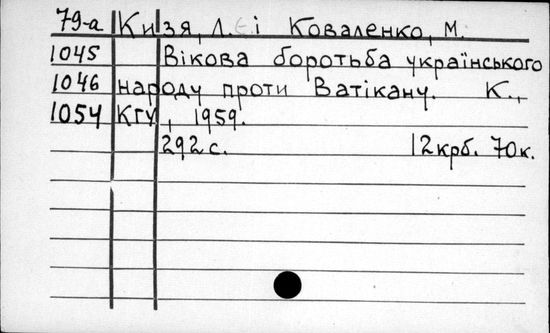 79-а Кизя, Л. Є і Коваленко, М.
1045 Вікова боротьба українського
1046 народу проти Ватікану. К.,
1054 КГУ, 1959.
292 с. 12 крб. 70 к.